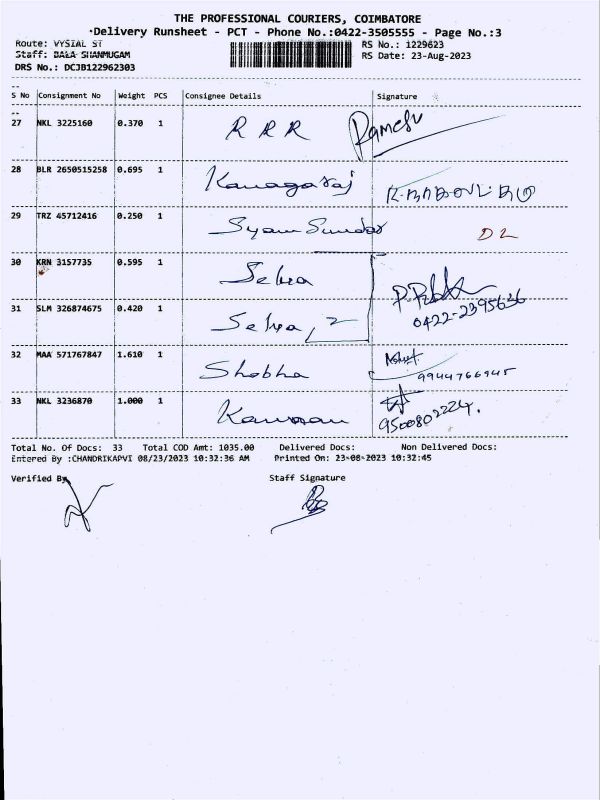 THE PROFESSIONAL COURIERS, COIMBATORE
Delivery Runsheet - PCT - Phone No.:0422-3505555 - Page No.:3
Route: VYSIAL ST
Staff: BALA SHANMUGAM
DRS No.: DCJB122962303
RS No.: 1229623
RS Date: 23-Aug-2023
S No Consignment No Weight PCS Consignee Details Signature
27 NKL 3225160 0.370 1 R R R Ramesh
28 BLR 2650515258 0.695 1 Kanagaraj
29 TRZ 45712416 0.250 1 Syam Sundar D2
30 KRN 3157735 0.595 1 Selva
31 SLM 326874675 0.420 1 Selva, 2 0422-2395636
32 MAA 571767847 1.610 1 Shobha 9944766945
33 NKL 3236870 1.000 1 Kannan 9500802224.
Total No. Of Docs: 33 Total COD Amt: 1035.00 Delivered Docs: Non Delivered Docs:
Entered By :CHANDRIKAPVI 08/23/2023 10:32:36 AM Printed On: 23-08-2023 10:32:45
Verified By
Staff Signature